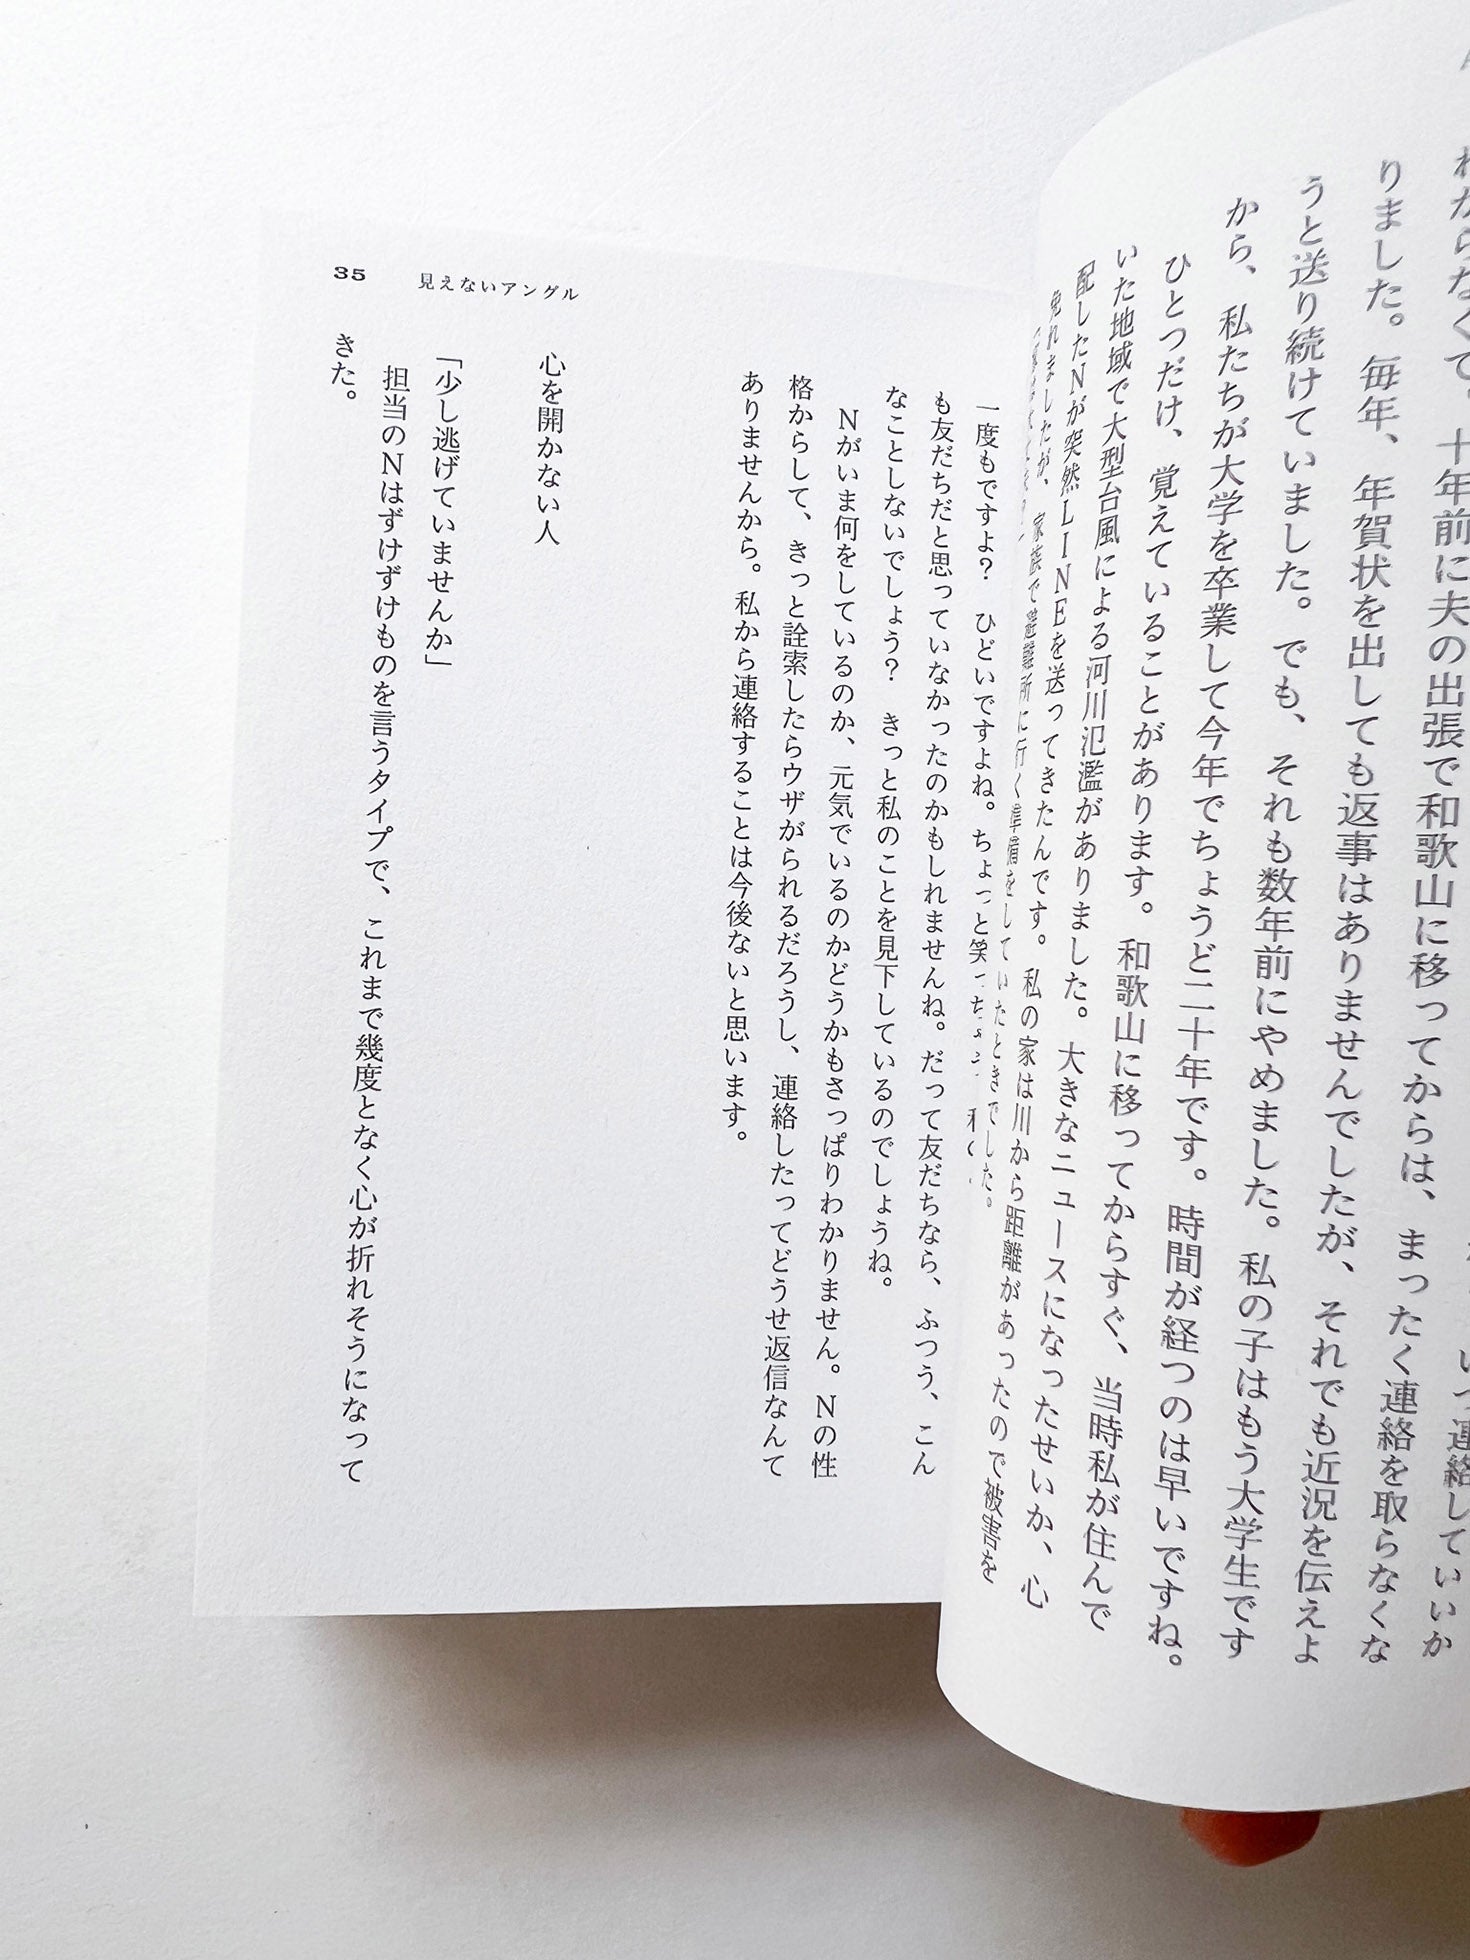 いつ連絡していいか
わからなくて。十年前に夫の出張で和歌山に移ってからは、まったく連絡を取らなくな
りました。毎年、年賀状を出しても返事はありませんでしたが、それでも近況を伝えよ
うと送り続けていました。でも、それも数年前にやめました。私の子はもう大学生です
から、私たちが大学を卒業して今年でちょうど二十年です。時間が経つのは早いですね。
ひとつだけ、覚えていることがあります。和歌山に移ってからすぐ、当時私が住んで
いた地域で大型台風による河川氾濫がありました。大きなニュースになったせいか、心
配したNが突然LINEを送ってきたんです。私の家は川から距離があったので被害を
免れましたが、家族で避難所に行く準備をしていたときでした。
一度もですよ？　ひどいですよね。ちょっと笑っちゃう
も友だちだと思っていなかったのかもしれませんね。だって友だちなら、ふつう、こん
なことしないでしょう？　きっと私のことを見下しているのでしょうね。
Nがいま何をしているのか、元気でいるのかどうかもさっぱりわかりません。Nの性
格からして、きっと詮索したらウザがられるだろうし、連絡したってどうせ返信なんて
ありませんから。私から連絡することは今後ないと思います。
心を開かない人
「少し逃げていませんか」
担当のNはずけずけものを言うタイプで、これまで幾度となく心が折れそうになって
きた。
35 見えないアングル